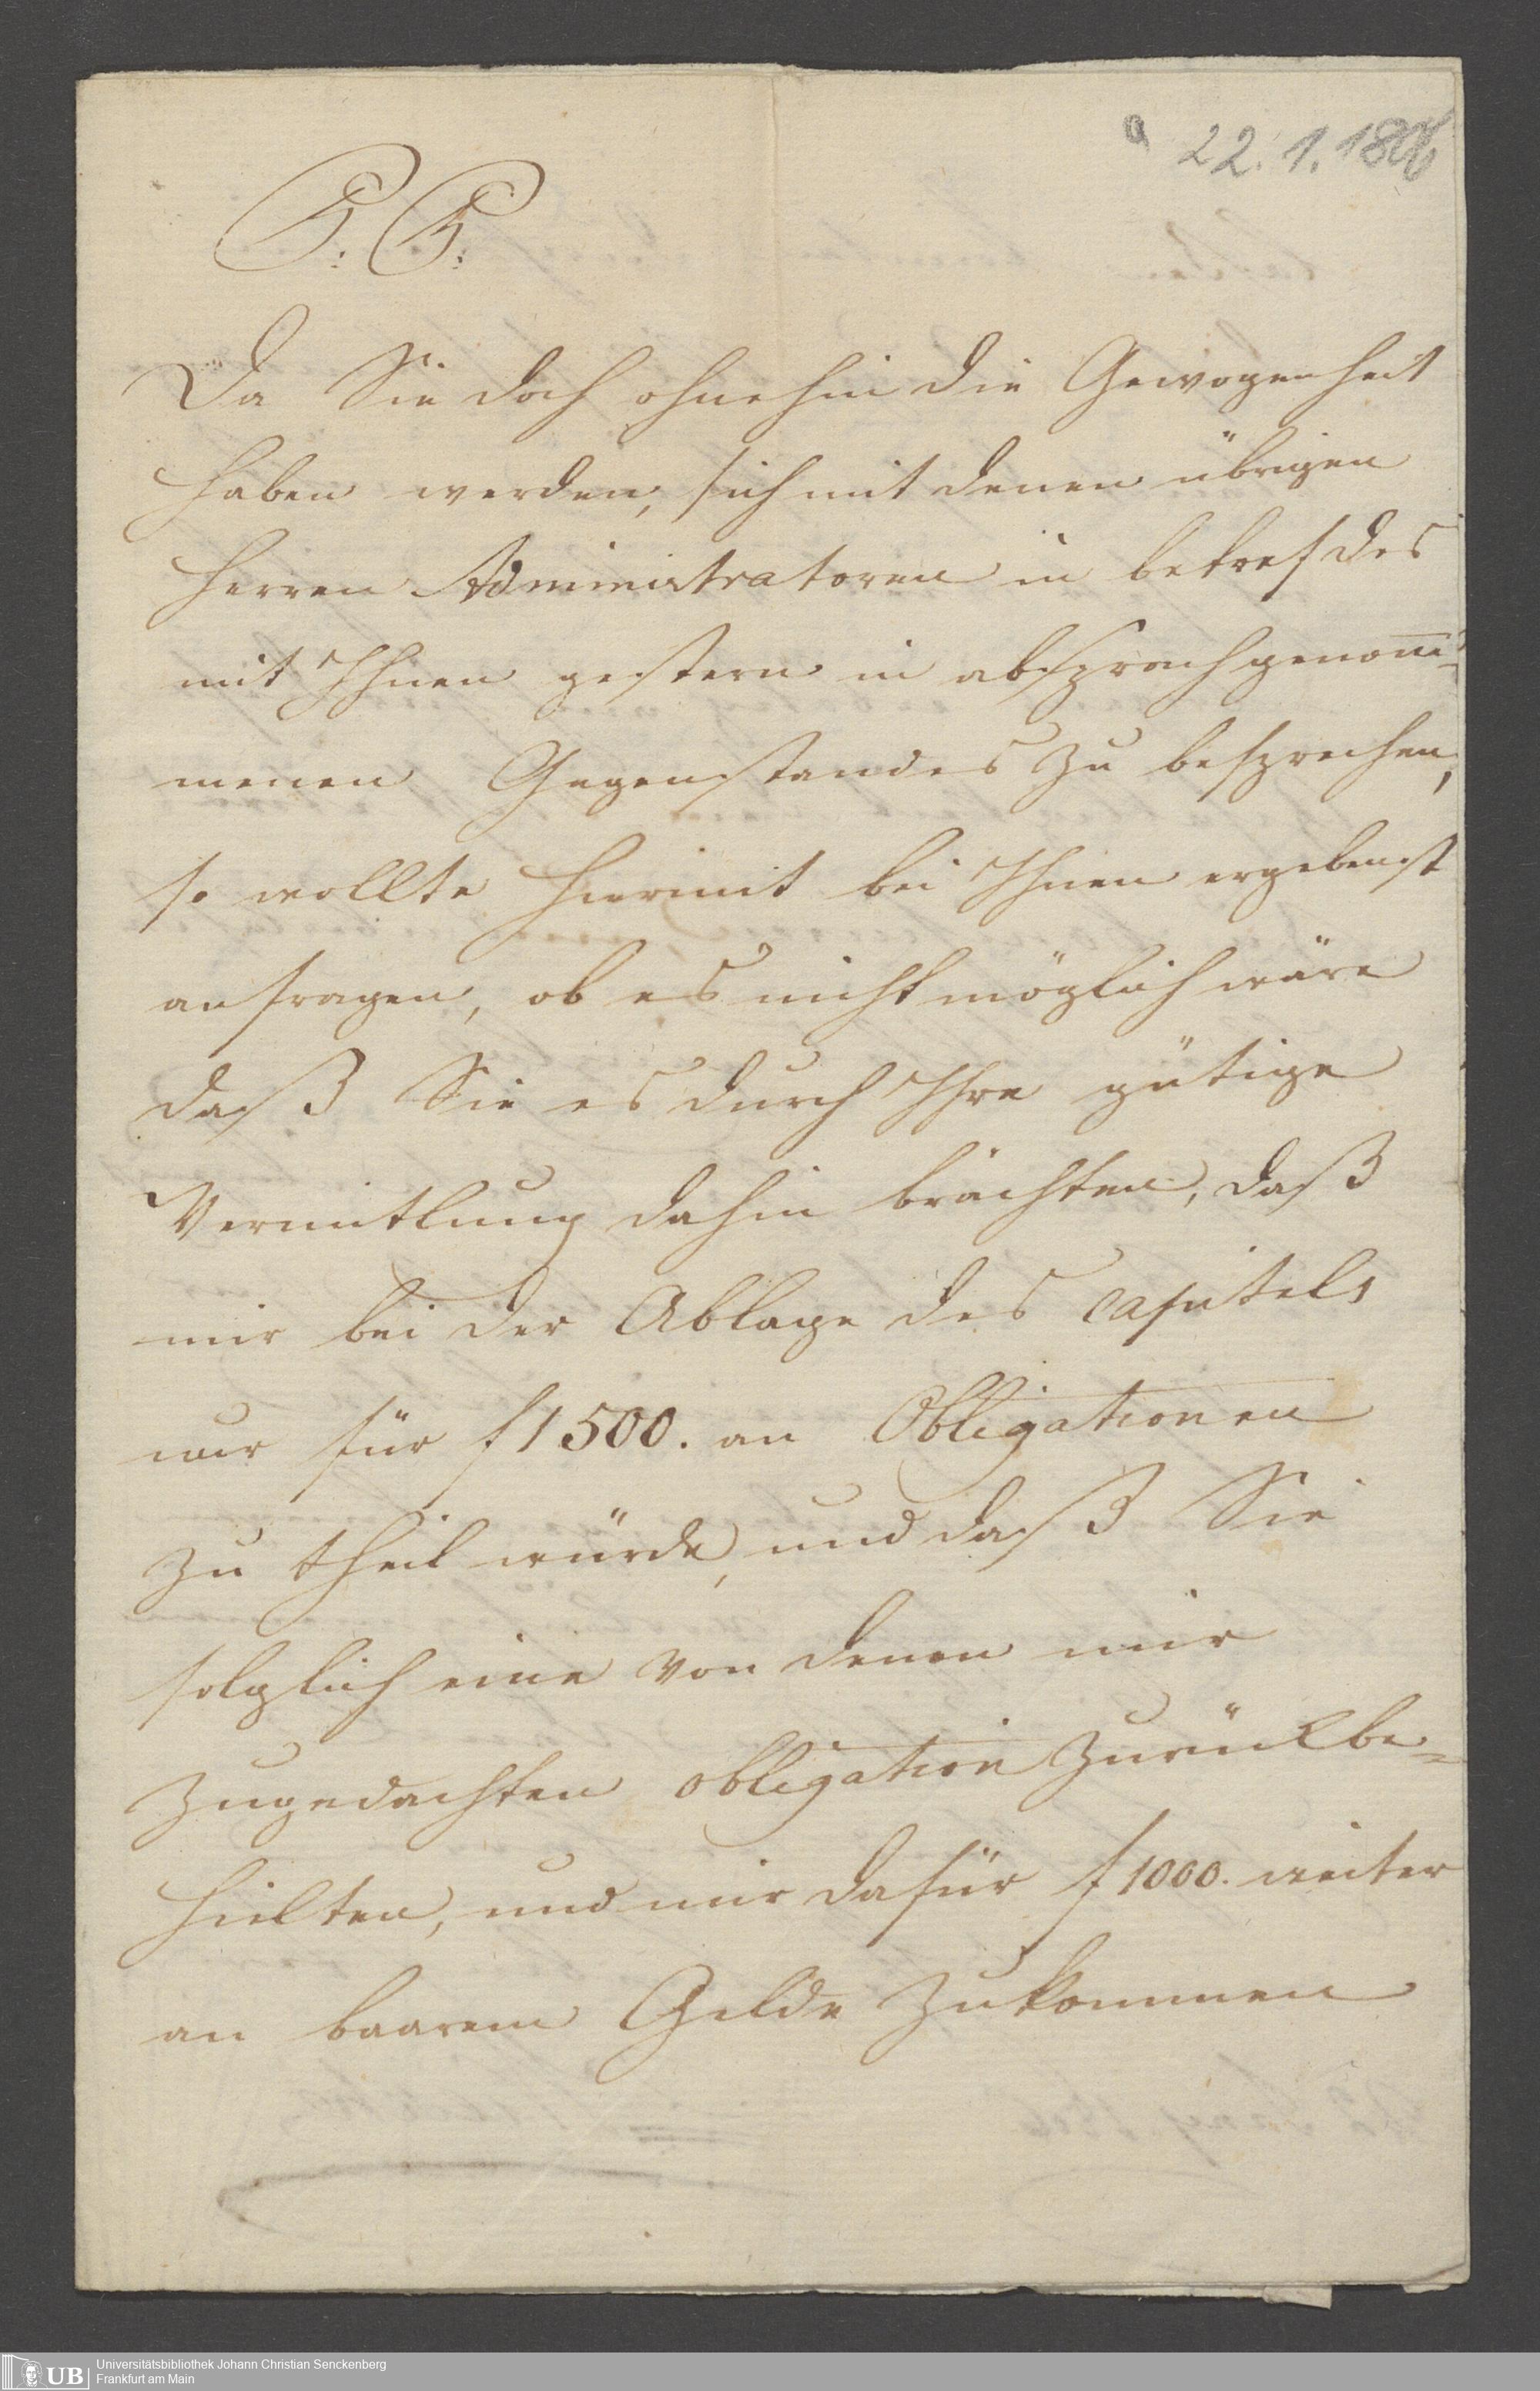 a 22.1.1806
P. P.
Da Sie doch ohnehin die Gewogenheit
haben werden, sich mit denen übrigen
Herren Administratoren in betref des
mit Ihnen gestern in absprach genom̅-
menen Gegenstandes zu besprechen,
so wollte hiermit bei Ihnen ergebenst
anfragen, ob es nicht möglich wäre
daß Sie es durch Ihre gütige
Vermitlung dahin brächten, daß
mir bei der Ablage des Capitels
nur für f 1500. an Obligationen
zu theil würde, und daß Sie
folglich eine von denen mir
zugedachten obligation zurückbe-
hielten, und mir dafür f 1000. weiter
an baarem Gelde zukommen
UB
Universitätsbibliothek Johann Christian Senckenberg
Frankfurt am Main